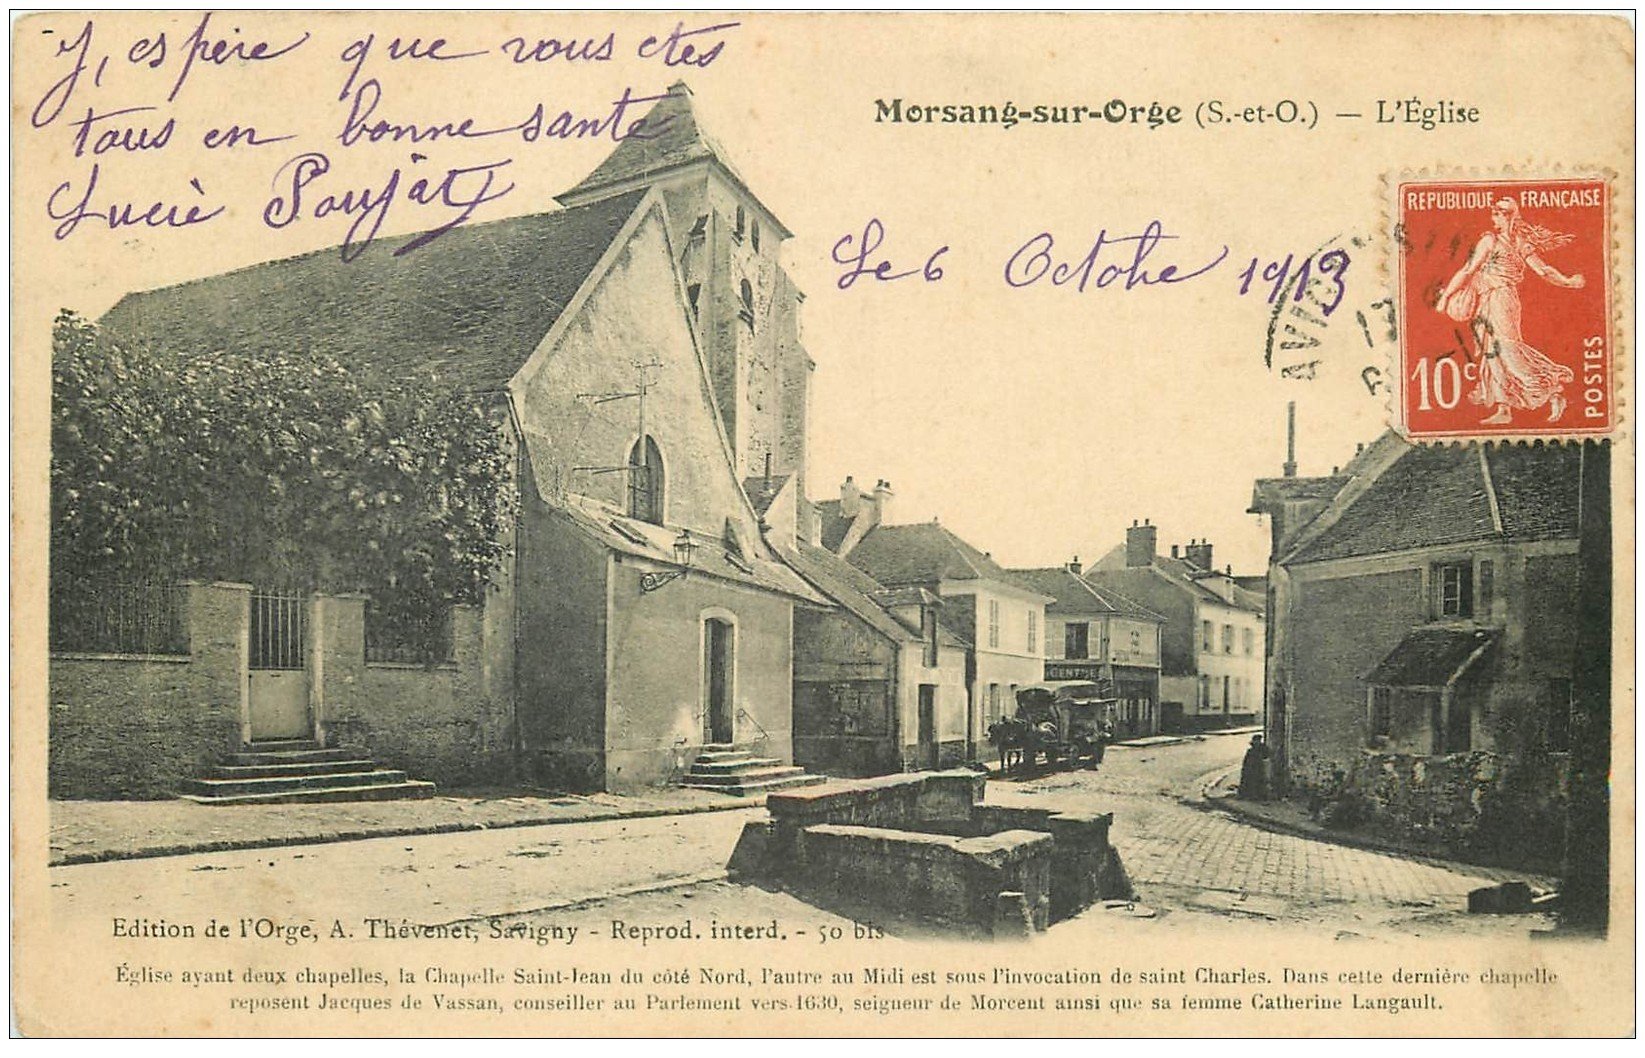 J, espère que vous etes
tous en bonne santé
Lucie Poujat
Morsang-sur-Orge (S.-et-O.) — L'Église
Le 6 Octobe 1913
REPUBLIQUE FRANÇAISE
10c
POSTES
13
Edition de l'Orge, A. Thévenet, Savigny - Reprod. interd. - 50 bis
Église ayant deux chapelles, la Chapelle Saint-Jean du côté Nord, l'autre au Midi est sous l'invocation de saint Charles. Dans cette dernière chapelle
reposent Jacques de Vassan, conseiller au Parlement vers 1630, seigneur de Morcent ainsi que sa femme Catherine Langault.